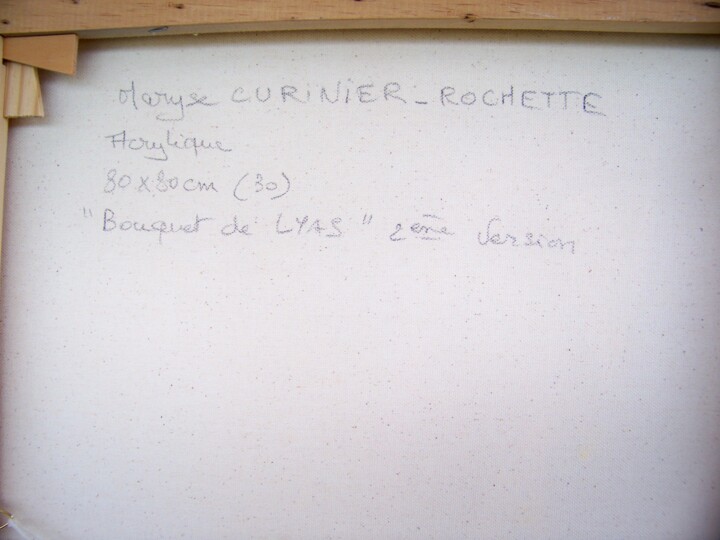 Maryse CURINIER-ROCHETTE
Acrylique
80x80cm (30)
"Bouquet de LYAS" 2ème Version